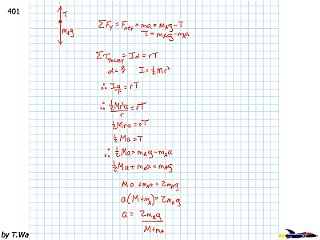 401
T
m_A g
ΣF_y = F_net = ma = m_A g - T
T = m_A g - m_A a
Στ_pulley = Iα = rT
α = a/r I = ½Mr²
∴ Ia/r = rT
∴ ½Mr²a/r = rT
½Mra = rT
½Ma = T
∴ ½Ma = m_A g - m_A a
½Ma + m_A a = m_A g
Ma + m_A a = 2m_A g
a(M + m_A) = 2m_A g
a = 2m_A g / M + m_A
by T.Wa